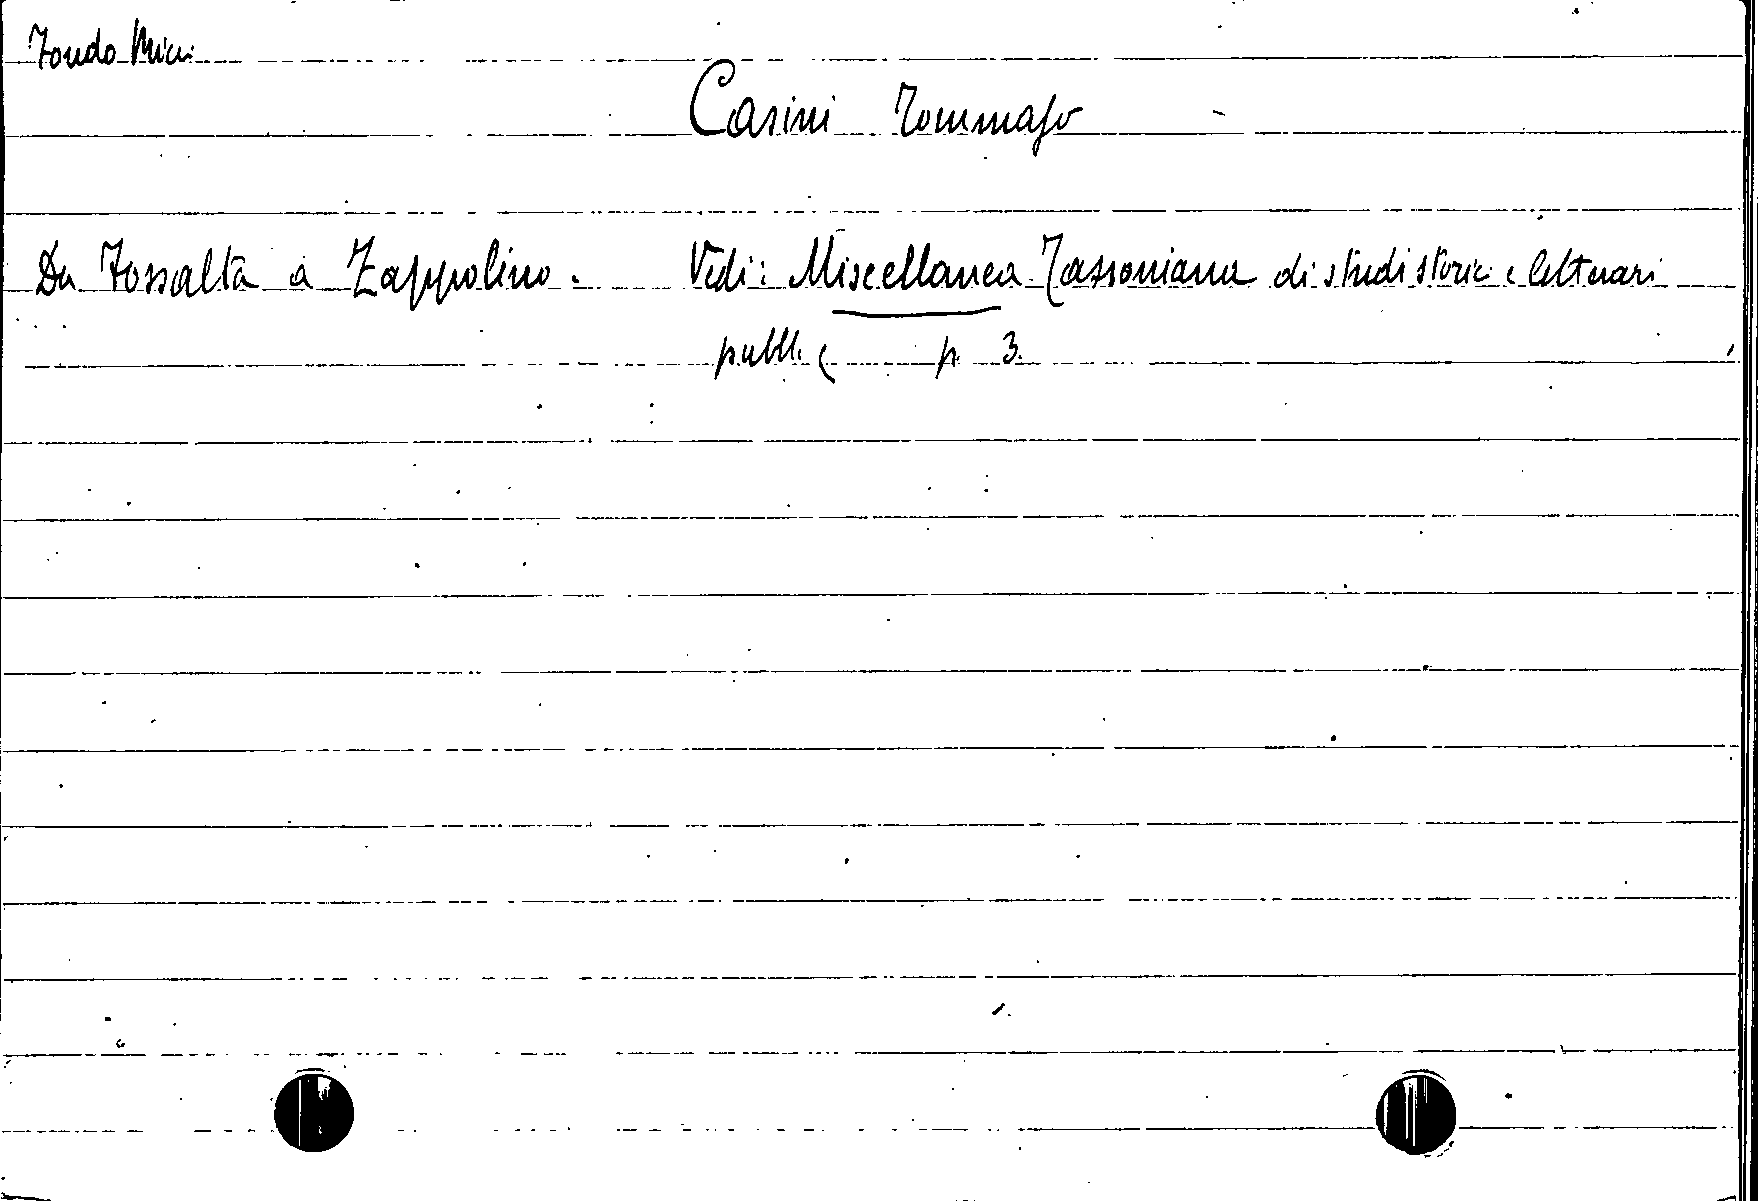 Fondo
Casini Tommaso
Da Fossalta a Zappolino. Vedi: Miscellanea Tassoniana di studi storici e letterari
pubbl. p. 3.